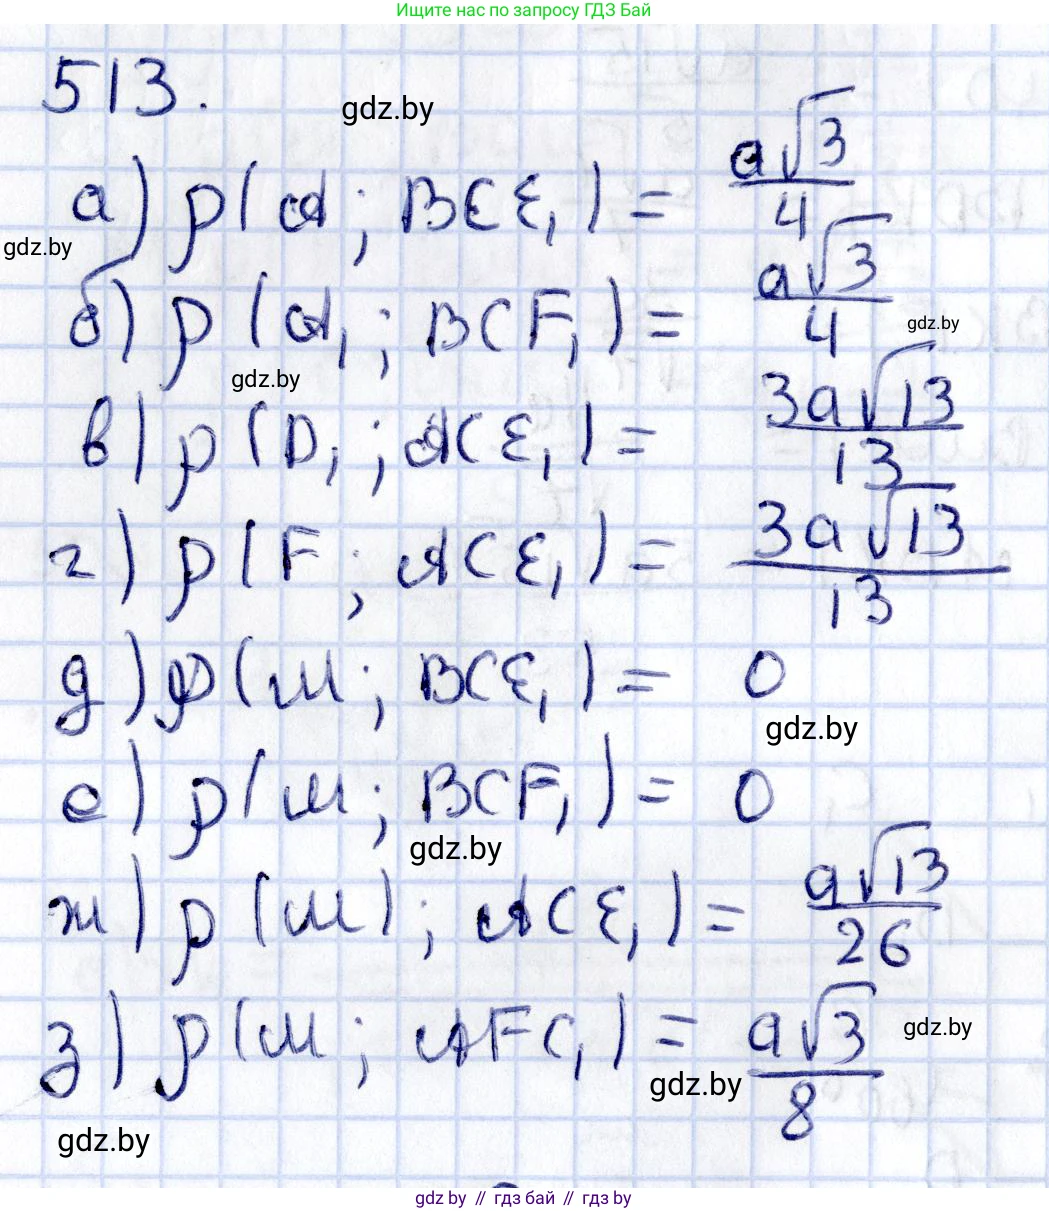 Ищите нас по запросу ГДЗ Бай
513.
gdz.by
а) ρ(A; BCE₁) = a√3/4
gdz.by
б) ρ(A₁; BCF₁) = a√3/4
gdz.by
gdz.by
в) ρ(D₁; ACE₁) = 3a√13/13
г) ρ(F; ACE₁) = 3a√13/13
д) ρ(M; BCE₁) = 0
gdz.by
е) ρ(M; BCF₁) = 0
gdz.by
ж) ρ(M); ACE₁) = a√13/26
з) ρ(M; AFC₁) = a√3/8
gdz.by
gdz.by
gdz.by
gdz.by // гдз бай // гдз by